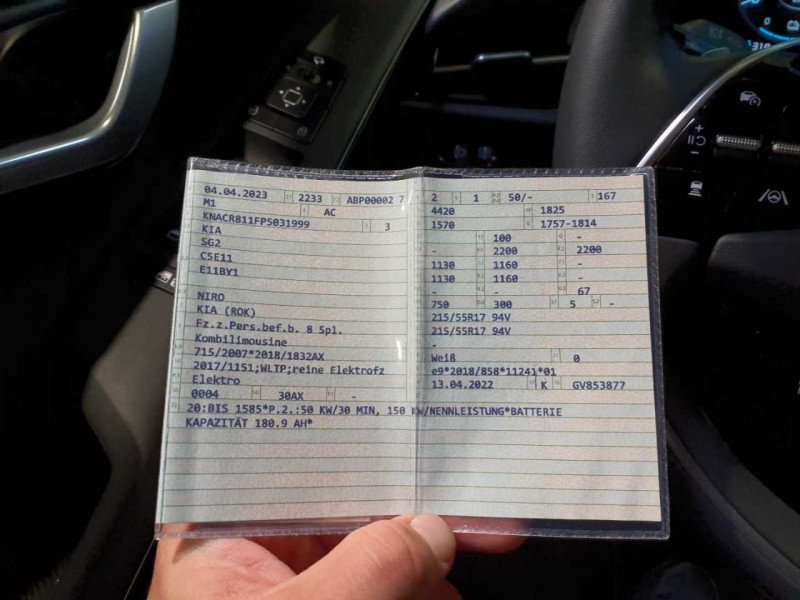 04.04.2023 2233 ABP00002 7
M1 AC
KNACR811FP5031999 3
KIA
SG2
C5E11
E11BY1
NIRO
KIA (ROK)
Fz.z.Pers.bef.b. 8 Spl.
Kombilimousine
715/2007*2018/1832AX
2017/1151;WLTP;reine Elektrofz
Elektro
0004 30AX -
20:BIS 1585*P.2.:50 KW/30 MIN, 150 KW/NENNLEISTUNG*BATTERIE
KAPAZITÄT 180.9 AH*
2 1 50/- 167
4420 1825
1570 1757-1814
100 -
- 2200 2200
1130 1160 -
1130 1160 -
- - 67
750 300 5 -
215/55R17 94V
215/55R17 94V
-
Weiß 0
e9*2018/858*11241*01
13.04.2022 K GV853877